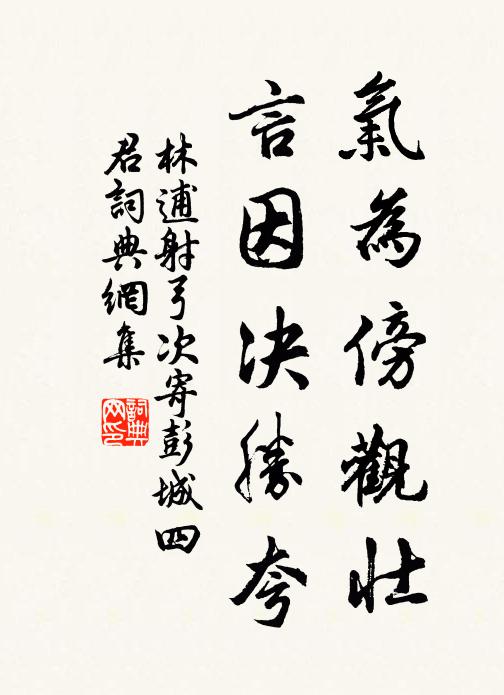 氣為傍觀壯
言因決勝夸
林逋射弓次寄彭城四
君詞典網集
詞典
网印